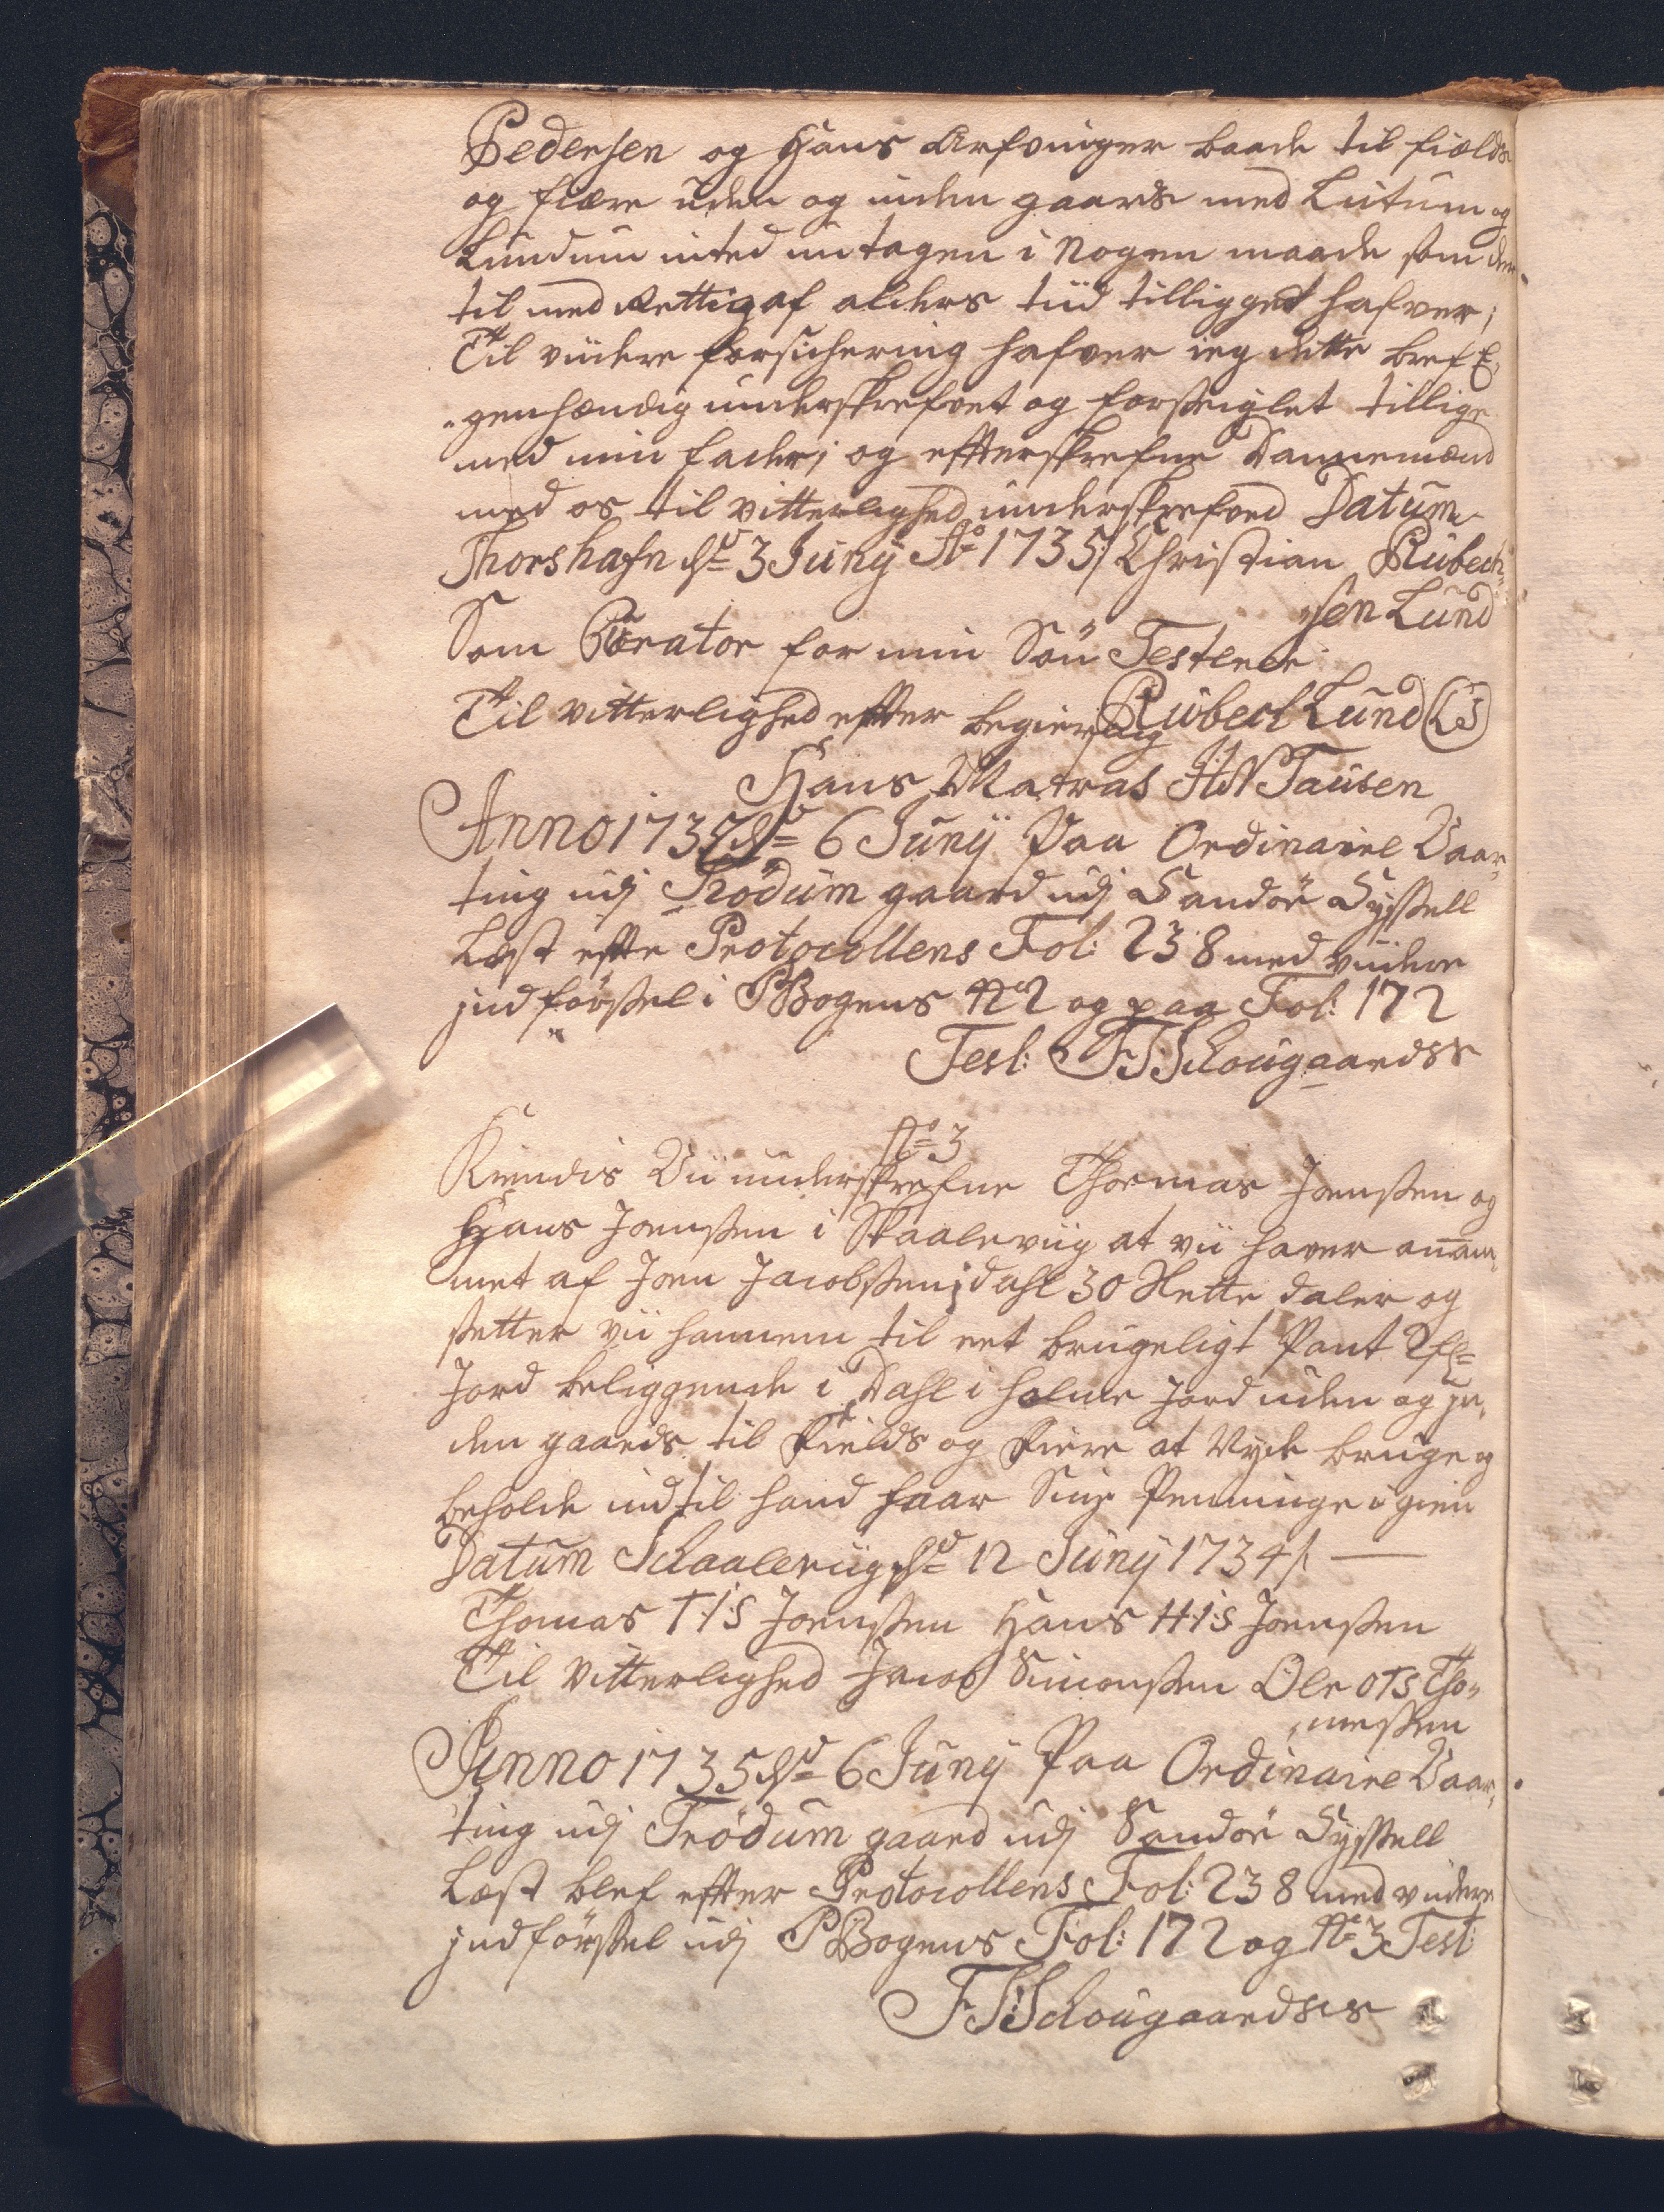 Pedersen og Hans Arfvinger baade til fields
og fiære uden og inden gaards med Lutum og
Lundum inted untagen i Nogen maade som der
til med Rettig af alders tiid tilligget hafver;
Til viidere forsichering hafver ieg dette bref E,
„genhændig underskrefvet og forseiglet tillige
med min fader; og effterskrefne Dannemænd
med os til vitterlighed underskrefved Datum
Thorshafn dd 3 Juny Ao 1735/ Christian Rubech„
„sen Lund
Som Curator for min Sön Testerer
Rubech Lund (LS)
Til vitterlighed effter begiering
Hans Matras HN Tausen
Anno 1735 dd 6 Juny Paa Ordinaire Vaar„
ting udj Trödum gaard udj Sandöe Syssell
Læst effte Protocollens Fol: 238 med viidere
jndförssel i PBogens No 2 og paa Fol: 172
Test: FS Schougaardss
No 3
Kiendis Vii underskrefne Thomas Joenssen og
Hans Joenssen i Skaaleviig at vii haver anam„
met af Joen Jacobssen i Dahl 30 Slette daler og
setter vii hannem til eet brugeligt Pant 2 f:
Jord beliggende i Dahl i holme jord uden og jn„
den gaards til Fields og Fiære at Nyde bruge og
beholde indtil hand faar Sine Penninge igien
Datum Schaaleviig dd 12 Juny 1734/.
Thomas T I S Joenssen Hans H I S Joenssen
Til Vitterlighed Jacob Simonssen Ole OTS Tho„
„messen
Anno 1735 dd 6 Juny Paa Ordinaire Vaar„
ting udj Trödum gaard udj Sandöe Syssell
Læst blef effter Protocollens Fol: 238 med viidere
jndförssel udj PBogens Fol: 172 og No 3 Test
FS Schougaardss